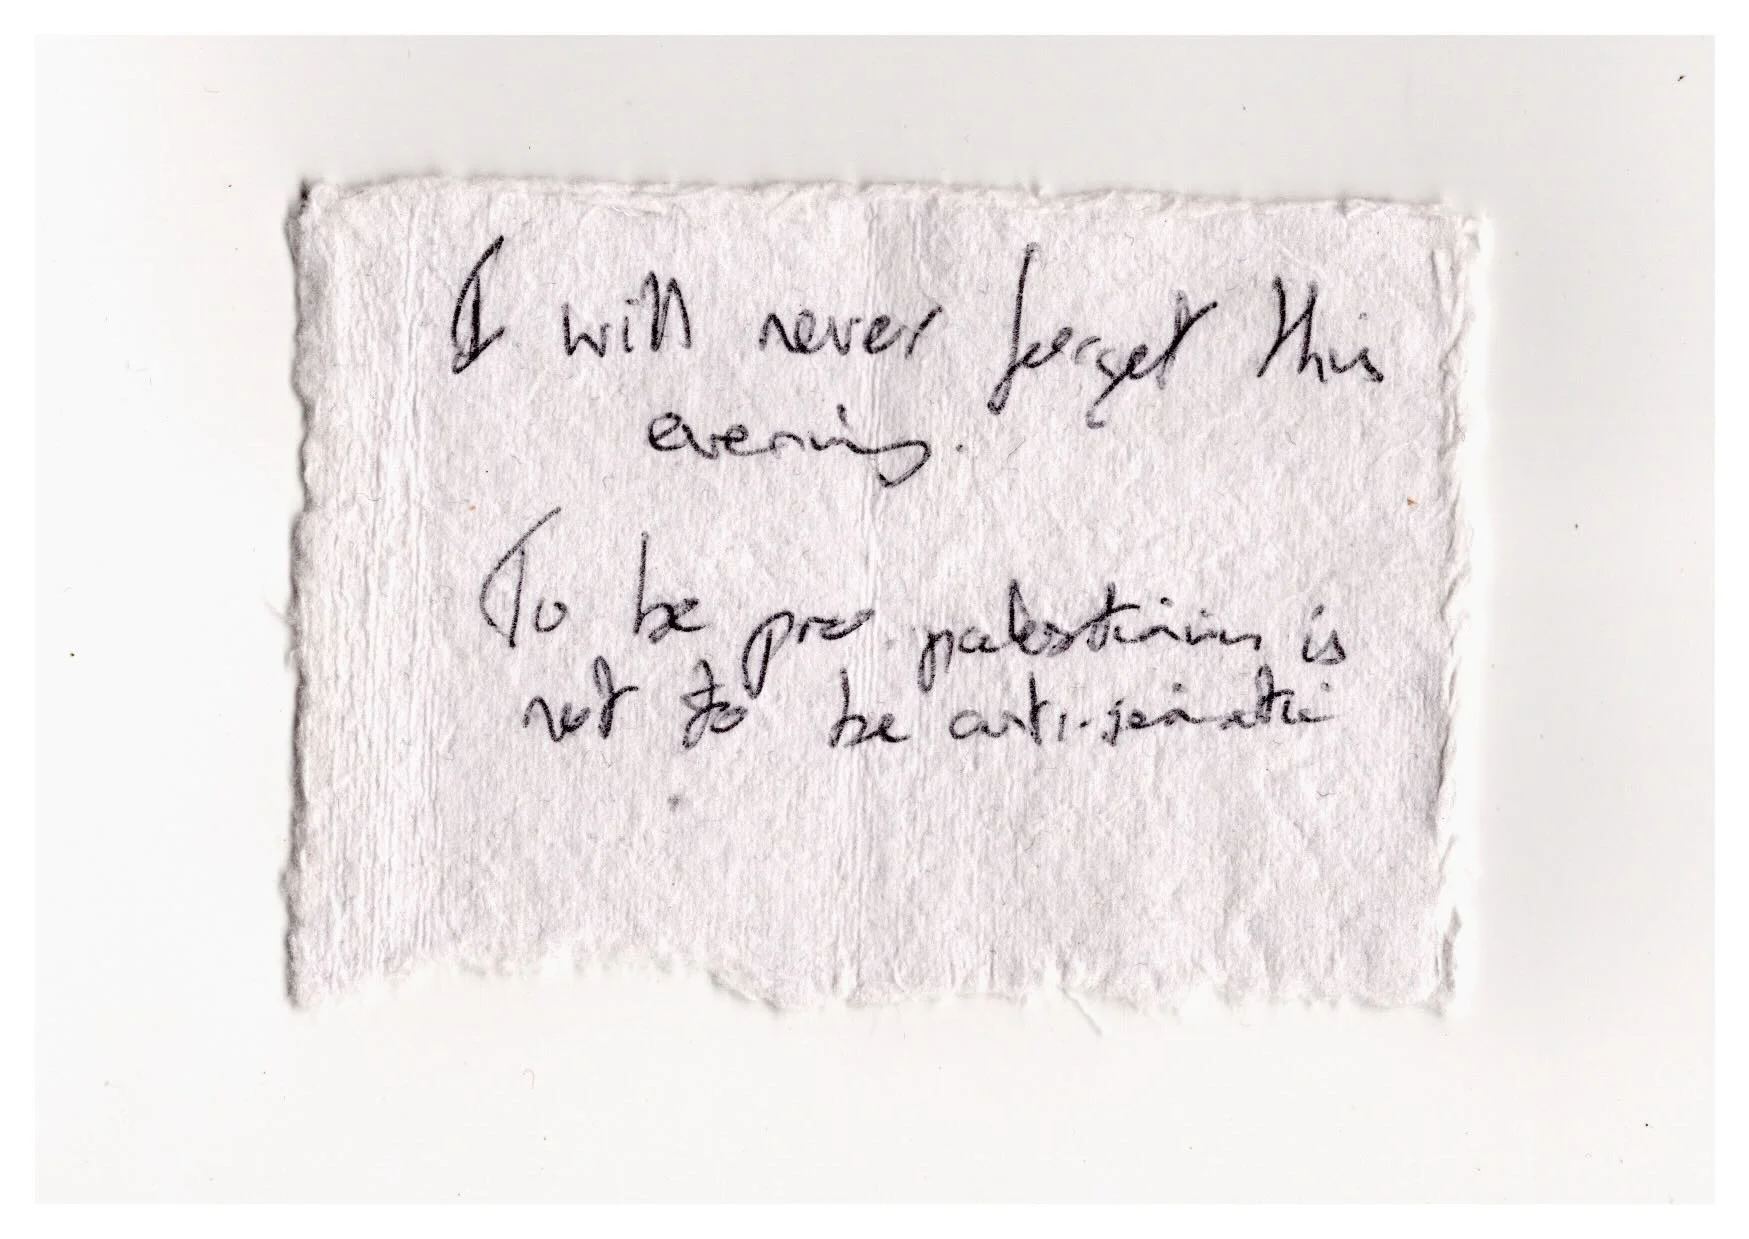 I will never forget this
evening.
To be pro. palestinian is
not to be anti-semitic